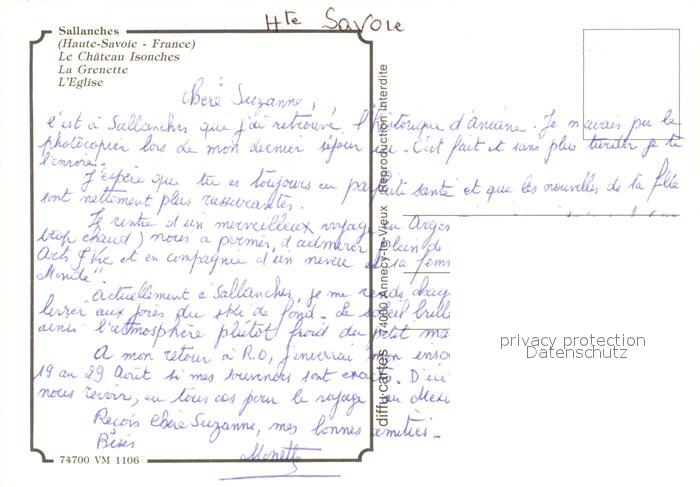 Hte Savoie
Sallanches
(Haute-Savoie - France)
Le Château Isonches
La Grenette
L'Eglise
Chère Suzanne,
C'est à Sallanches que j'ai retrouvé l'historique d'Aniane. Je n'avais pu le
photocopier lors de mon dernier séjour ici. C'est fait et sans plus tarder je te
l'envoie.
J'espère que tu es toujours en parfaite santé et que les nouvelles de ta fille
sont nettement plus rassurantes.
Je rentre d'un merveilleux voyage en Argen
trop chaud) nous a permis, d'admirer plein de
Arts et en compagnie d'un neveu et sa fem
Monde".
Actuellement à Sallanches, je me rends chaq
livrer aux joies du ski de fond. Le soleil brille
ainsi l'atmosphère plutôt froid du petit ma
A mon retour à R.O, j'enverrai mon
19 au 29 Août si mes souvenirs sont exacts. D'ici
nous revoir, en tous cas pour le voyage au Mexi
Reçois Chère Suzanne, mes bonnes amitiés -
Bises
Monette
74700 VM 1106
diffu cartes 74000 Annecy-le-Vieux Reproduction interdite
privacy protection
Datenschutz